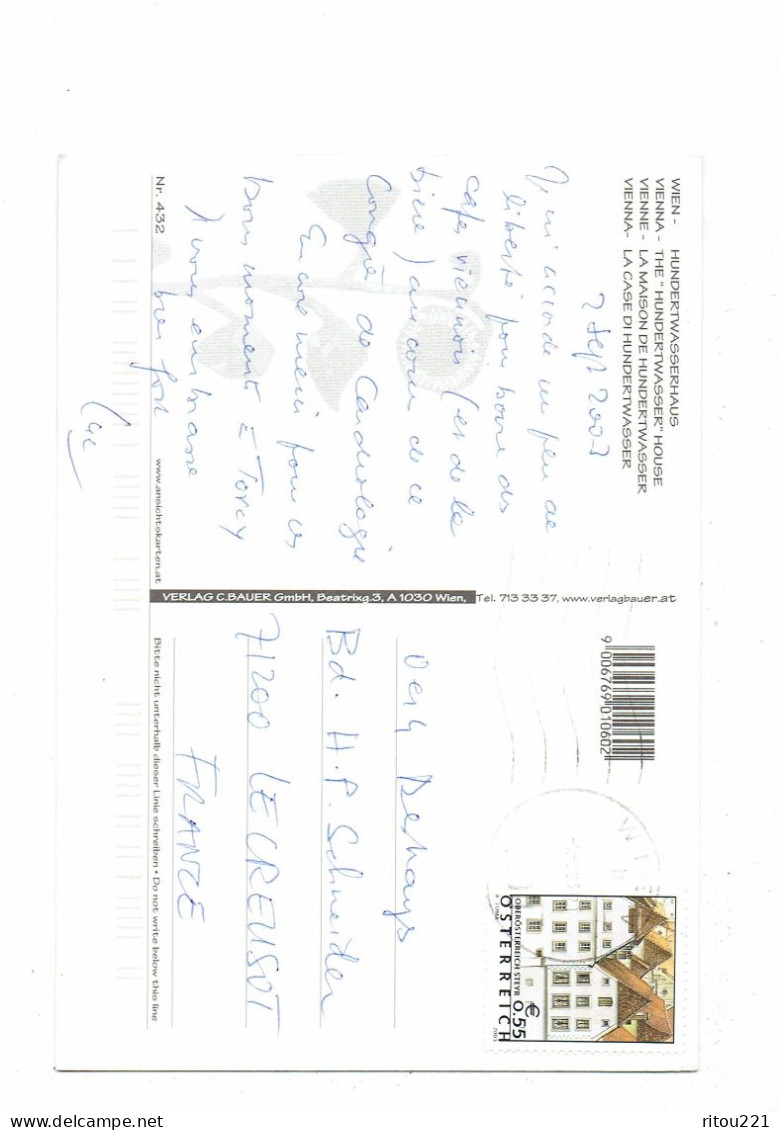 WIEN - HUNDERTWASSERHAUS
VIENNA - THE " HUNDERTWASSER" HOUSE
VIENNE - LA MAISON DE HUNDERTWASSER
VIENNA - LA CASE DI HUNDERTWASSER
2 Sept 2003
J'ai accordé un peu de
liberté pour boire des
cafés viennois (et de la
bière) au cours de ce
Congrès de Cardiologie
Encore merci pour ces
bons moments à Torcy
Je vous embrasse
très fort
Nr. 432
www.ansichtskarten.at
VERLAG C.BAUER GmbH, Beatrixg.3, A 1030 Wien, Tel. 713 33 37, www.verlagbauer.at
9 006769 010602
WIEN
OBERÖSTERREICH STEYR
€ 0,55
ÖSTERREICH
2003
Deshays
Bd. H.P. Schneider
71200 LE CREUSOT
FRANCE
Bitte nicht unterhalb dieser Linie schreiben • Do not write below this line
ritou221